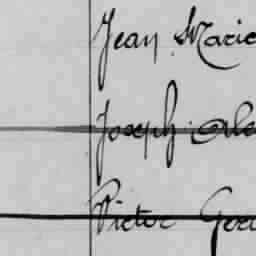 Jean Marie
Joseph
Victor